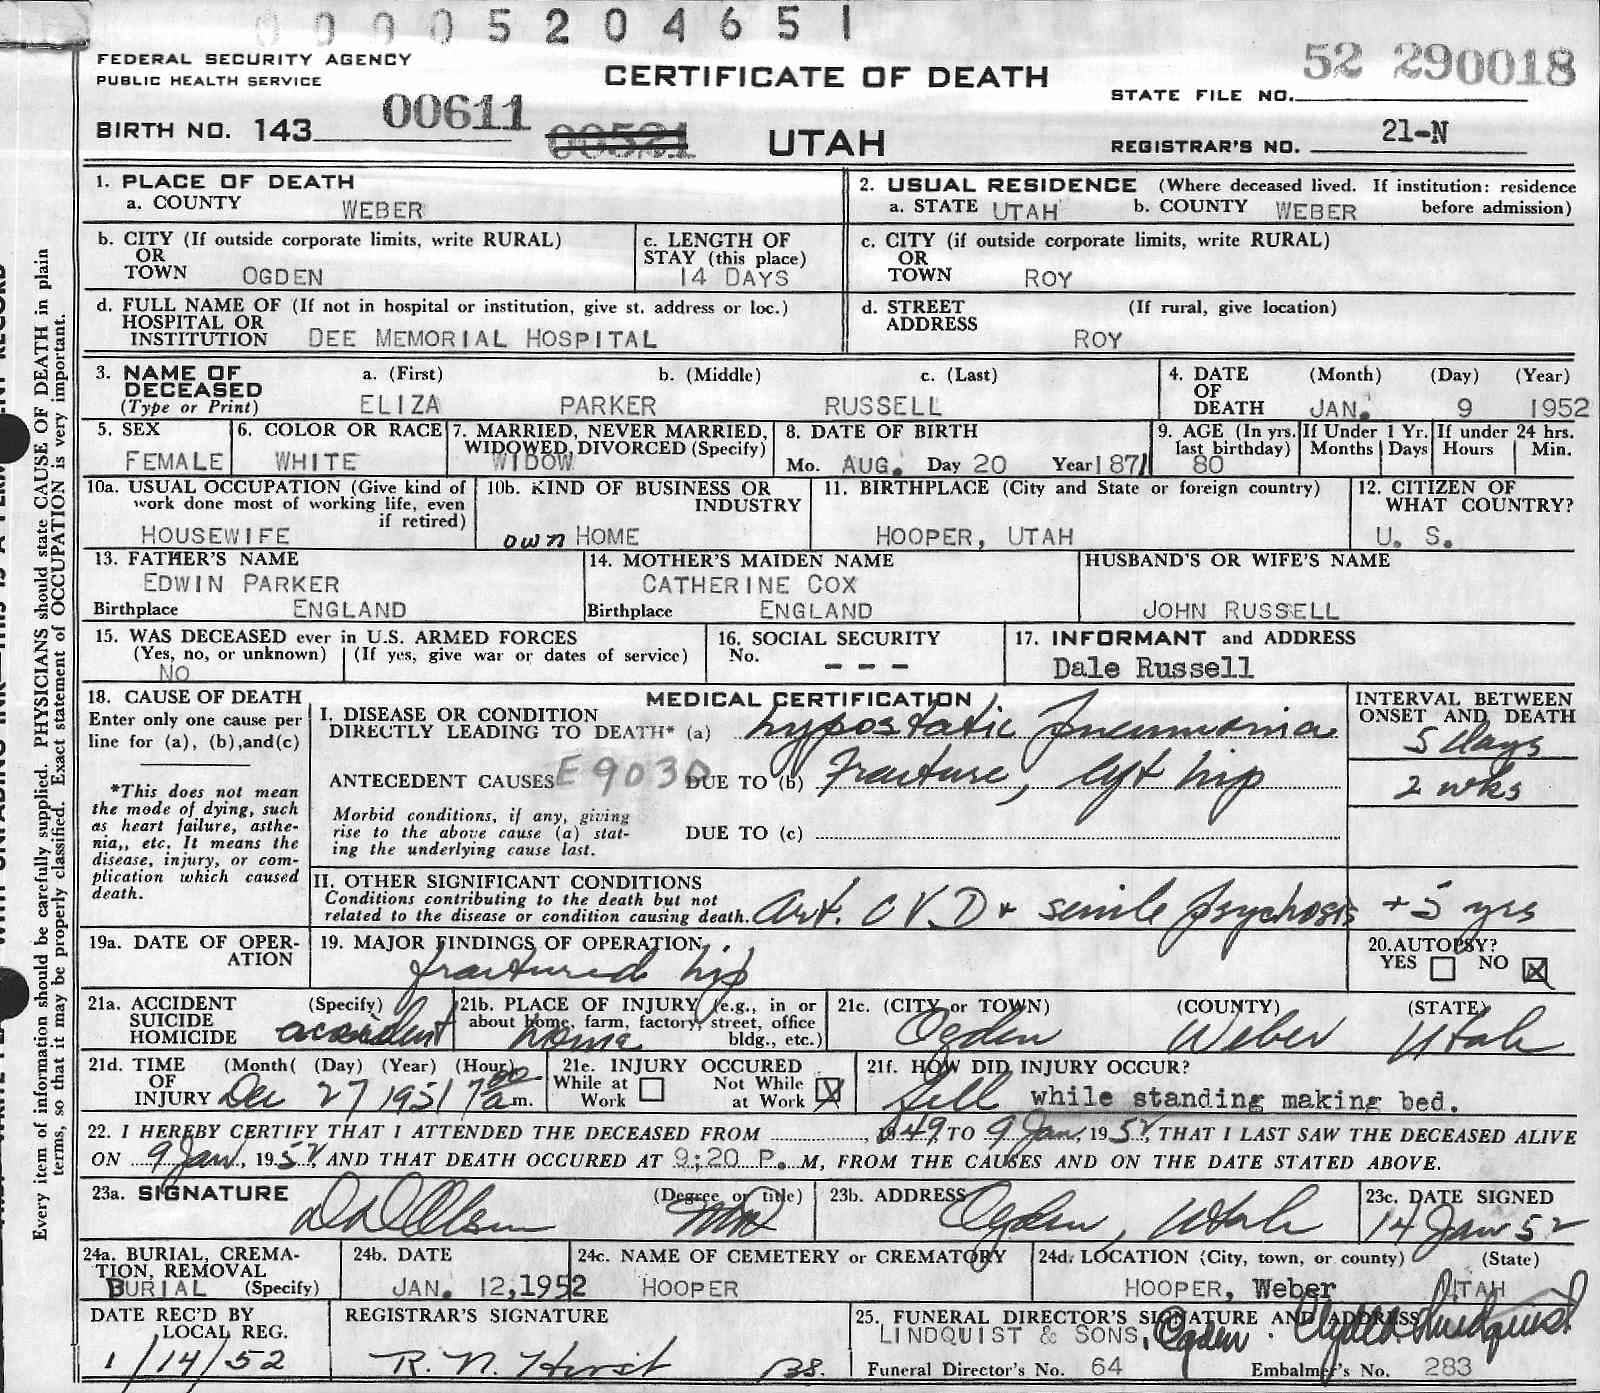 00005204651
FEDERAL SECURITY AGENCY
PUBLIC HEALTH SERVICE
CERTIFICATE OF DEATH
52 290018
STATE FILE NO.
BIRTH NO. 143 00611 00521 UTAH
REGISTRAR'S NO. 21-N
1. PLACE OF DEATH
a. COUNTY WEBER
2. USUAL RESIDENCE (Where deceased lived. If institution: residence before admission)
a. STATE UTAH b. COUNTY WEBER
b. CITY (If outside corporate limits, write RURAL)
OR
TOWN OGDEN
c. LENGTH OF
STAY (this place)
14 DAYS
c. CITY (if outside corporate limits, write RURAL)
OR
TOWN ROY
d. FULL NAME OF (If not in hospital or institution, give st. address or loc.)
HOSPITAL OR
INSTITUTION DEE MEMORIAL HOSPITAL
d. STREET (If rural, give location)
ADDRESS ROY
3. NAME OF DECEASED
(Type or Print)
a. (First) b. (Middle) c. (Last)
ELIZA PARKER RUSSELL
4. DATE OF DEATH (Month) (Day) (Year)
JAN. 9 1952
5. SEX
FEMALE
6. COLOR OR RACE
WHITE
7. MARRIED, NEVER MARRIED,
WIDOWED, DIVORCED (Specify)
WIDOW
8. DATE OF BIRTH
Mo. AUG. Day 20 Year 1871
9. AGE (In yrs. last birthday)
80
If Under 1 Yr.
Months Days
If under 24 hrs.
Hours Min.
10a. USUAL OCCUPATION (Give kind of
work done most of working life, even
if retired)
HOUSEWIFE
10b. KIND OF BUSINESS OR
INDUSTRY
own HOME
11. BIRTHPLACE (City and State or foreign country)
HOOPER, UTAH
12. CITIZEN OF
WHAT COUNTRY?
U. S.
13. FATHER'S NAME
EDWIN PARKER
Birthplace ENGLAND
14. MOTHER'S MAIDEN NAME
CATHERINE COX
Birthplace ENGLAND
HUSBAND'S OR WIFE'S NAME
JOHN RUSSELL
15. WAS DECEASED ever in U.S. ARMED FORCES
(Yes, no, or unknown) (If yes, give war or dates of service)
NO
16. SOCIAL SECURITY
No. - - -
17. INFORMANT and ADDRESS
Dale Russell
18. CAUSE OF DEATH
Enter only one cause per
line for (a), (b),and(c)
*This does not mean
the mode of dying, such
as heart failure, asthe-
nia,, etc. It means the
disease, injury, or com-
plication which caused
death.
MEDICAL CERTIFICATION
I. DISEASE OR CONDITION
DIRECTLY LEADING TO DEATH* (a) hypostatic pneumonia
ANTECEDENT CAUSES E903 DUE TO (b) Fracture, left hip
Morbid conditions, if any, giving
rise to the above cause (a) stat-
ing the underlying cause last.
DUE TO (c)
INTERVAL BETWEEN
ONSET AND DEATH
5 days
2 wks
II. OTHER SIGNIFICANT CONDITIONS
Conditions contributing to the death but not
related to the disease or condition causing death. Art. CVD + senile psychosis +5 yrs
19a. DATE OF OPER-
ATION
19. MAJOR FINDINGS OF OPERATION
fractured hip
20.AUTOPSY?
YES NO X
21a. ACCIDENT (Specify)
SUICIDE
HOMICIDE accident
21b. PLACE OF INJURY (e.g., in or
about home, farm, factory, street, office
bldg., etc.)
home
21c. (CITY or TOWN) (COUNTY) (STATE)
Ogden Weber Utah
21d. TIME (Month( (Day) (Year) (Hour)
OF
INJURY Dec 27 1951 7 00 a m.
21e. INJURY OCCURED
While at Work
Not While at Work X
21f. HOW DID INJURY OCCUR?
Fell while standing making bed.
22. I HEREBY CERTIFY THAT I ATTENDED THE DECEASED FROM , 1949, TO 9 Jan, 1952, THAT I LAST SAW THE DECEASED ALIVE
ON 9 Jan., 1952, AND THAT DEATH OCCURED AT 9:20 P. M, FROM THE CAUSES AND ON THE DATE STATED ABOVE.
23a. SIGNATURE (Degree or title)
Olsen MD
23b. ADDRESS
Ogden, Utah
23c. DATE SIGNED
14 Jan 52
24a. BURIAL, CREMA-
TION, REMOVAL
BURIAL (Specify)
24b. DATE
JAN. 12,1952
24c. NAME OF CEMETERY or CREMATORY
HOOPER
24d. LOCATION (City, town, or county) (State)
HOOPER, Weber UTAH
DATE REC'D BY
LOCAL REG.
1/14/52
REGISTRAR'S SIGNATURE
R. N. Hirst BS.
25. FUNERAL DIRECTOR'S SIGNATURE AND ADDRESS
LINDQUIST & SONS, Ogden. Clyde Lindquist
Funeral Director's No. 64 Embalmer's No. 283
Every item of information should be carefully supplied. PHYSICIANS should state CAUSE OF DEATH in plain
terms, so that it may be properly classified. Exact statement of OCCUPATION is very important.